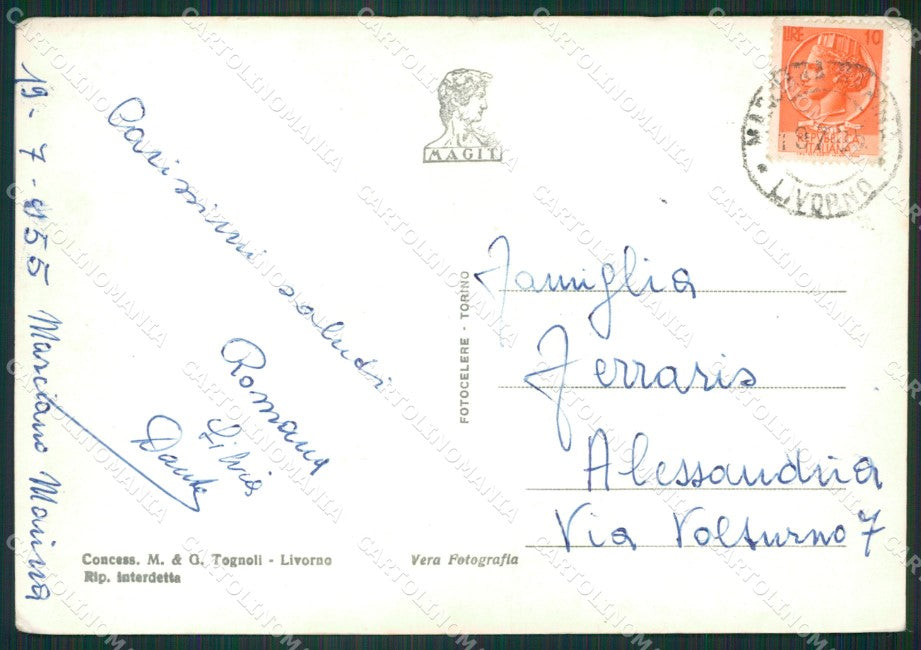 19-7-955 Marciano Marina
Carissimi saluti
Romana
Silvia
Dante
MAGIT
LIRE 10
REPUBBLICA
ITALIANA
LIVORNO
FOTOCELERE - TORINO
Famiglia
Ferraris
Alessandria
Via Volturno 7
Concess. M. & G. Tognoli - Livorno
Rip. interdetta
Vera Fotografia
CARTOLINOMANIA